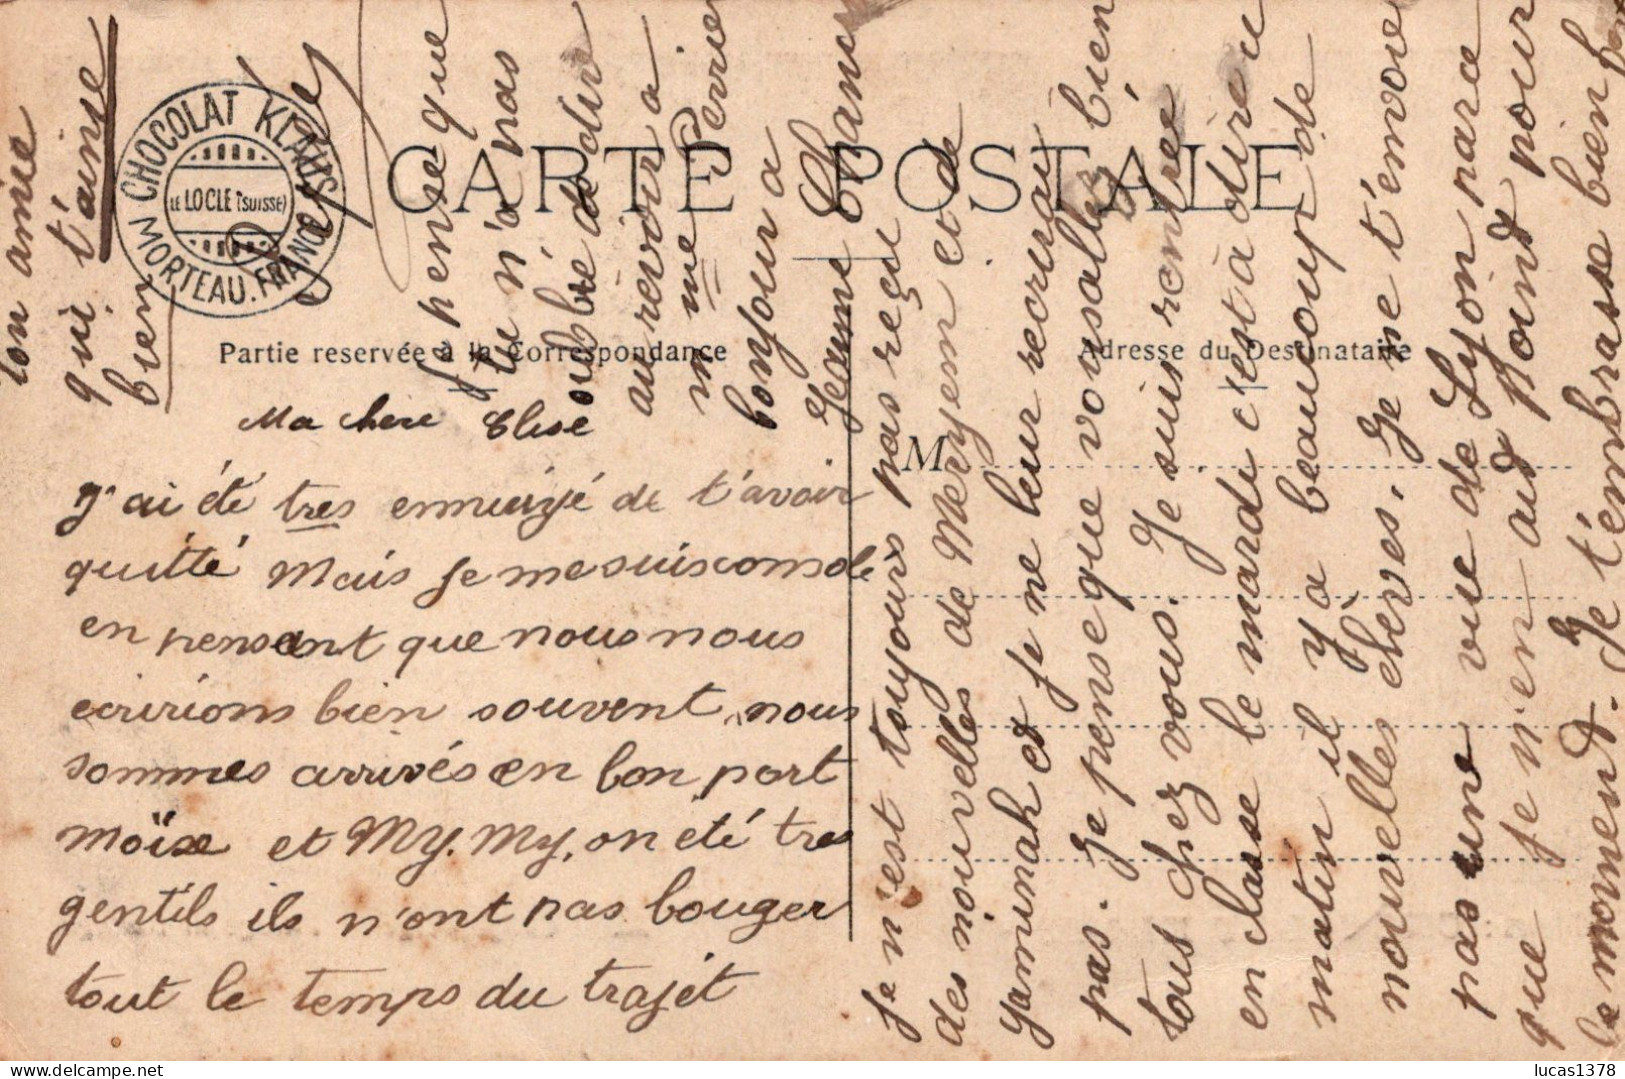 CARTE POSTALE
CHOCOLAT KLAUS
LE LOCLE (SUISSE)
MORTEAU. FRANCE
Partie reservée à la Correspondance
Adresse du Destinataire
M
Ma chère Elise
J'ai été tres ennuiyé de t'avoir
quitté Mais je me suis consolé
en pensant que nous nous
ecririons bien souvent, nous
sommes arrivés en bon port
moïse et My. My, on été tres
gentils ils n'ont pas bouger
tout le temps du trajet
Je n'est toujours pas reçu
des nouvelles de Meryem et de
yaminah et je ne leur recrirai
pas. Je pense que vous allez bien
tous chez vous. Je suis rentré
en classe le mardi c'est à dire
matin il y a beaucoup de
nouvelles élèves. Je ne t'envoie
pas une vue de Lyon parce
que je n'en ais point pour
le moment. Je t'embrasse bien
Jpense que
tu n'a pas
oublié de dire
au revoir a
mme
bonjour a
Jeanne
ton amie
qui t'aime
bien
lucas1378